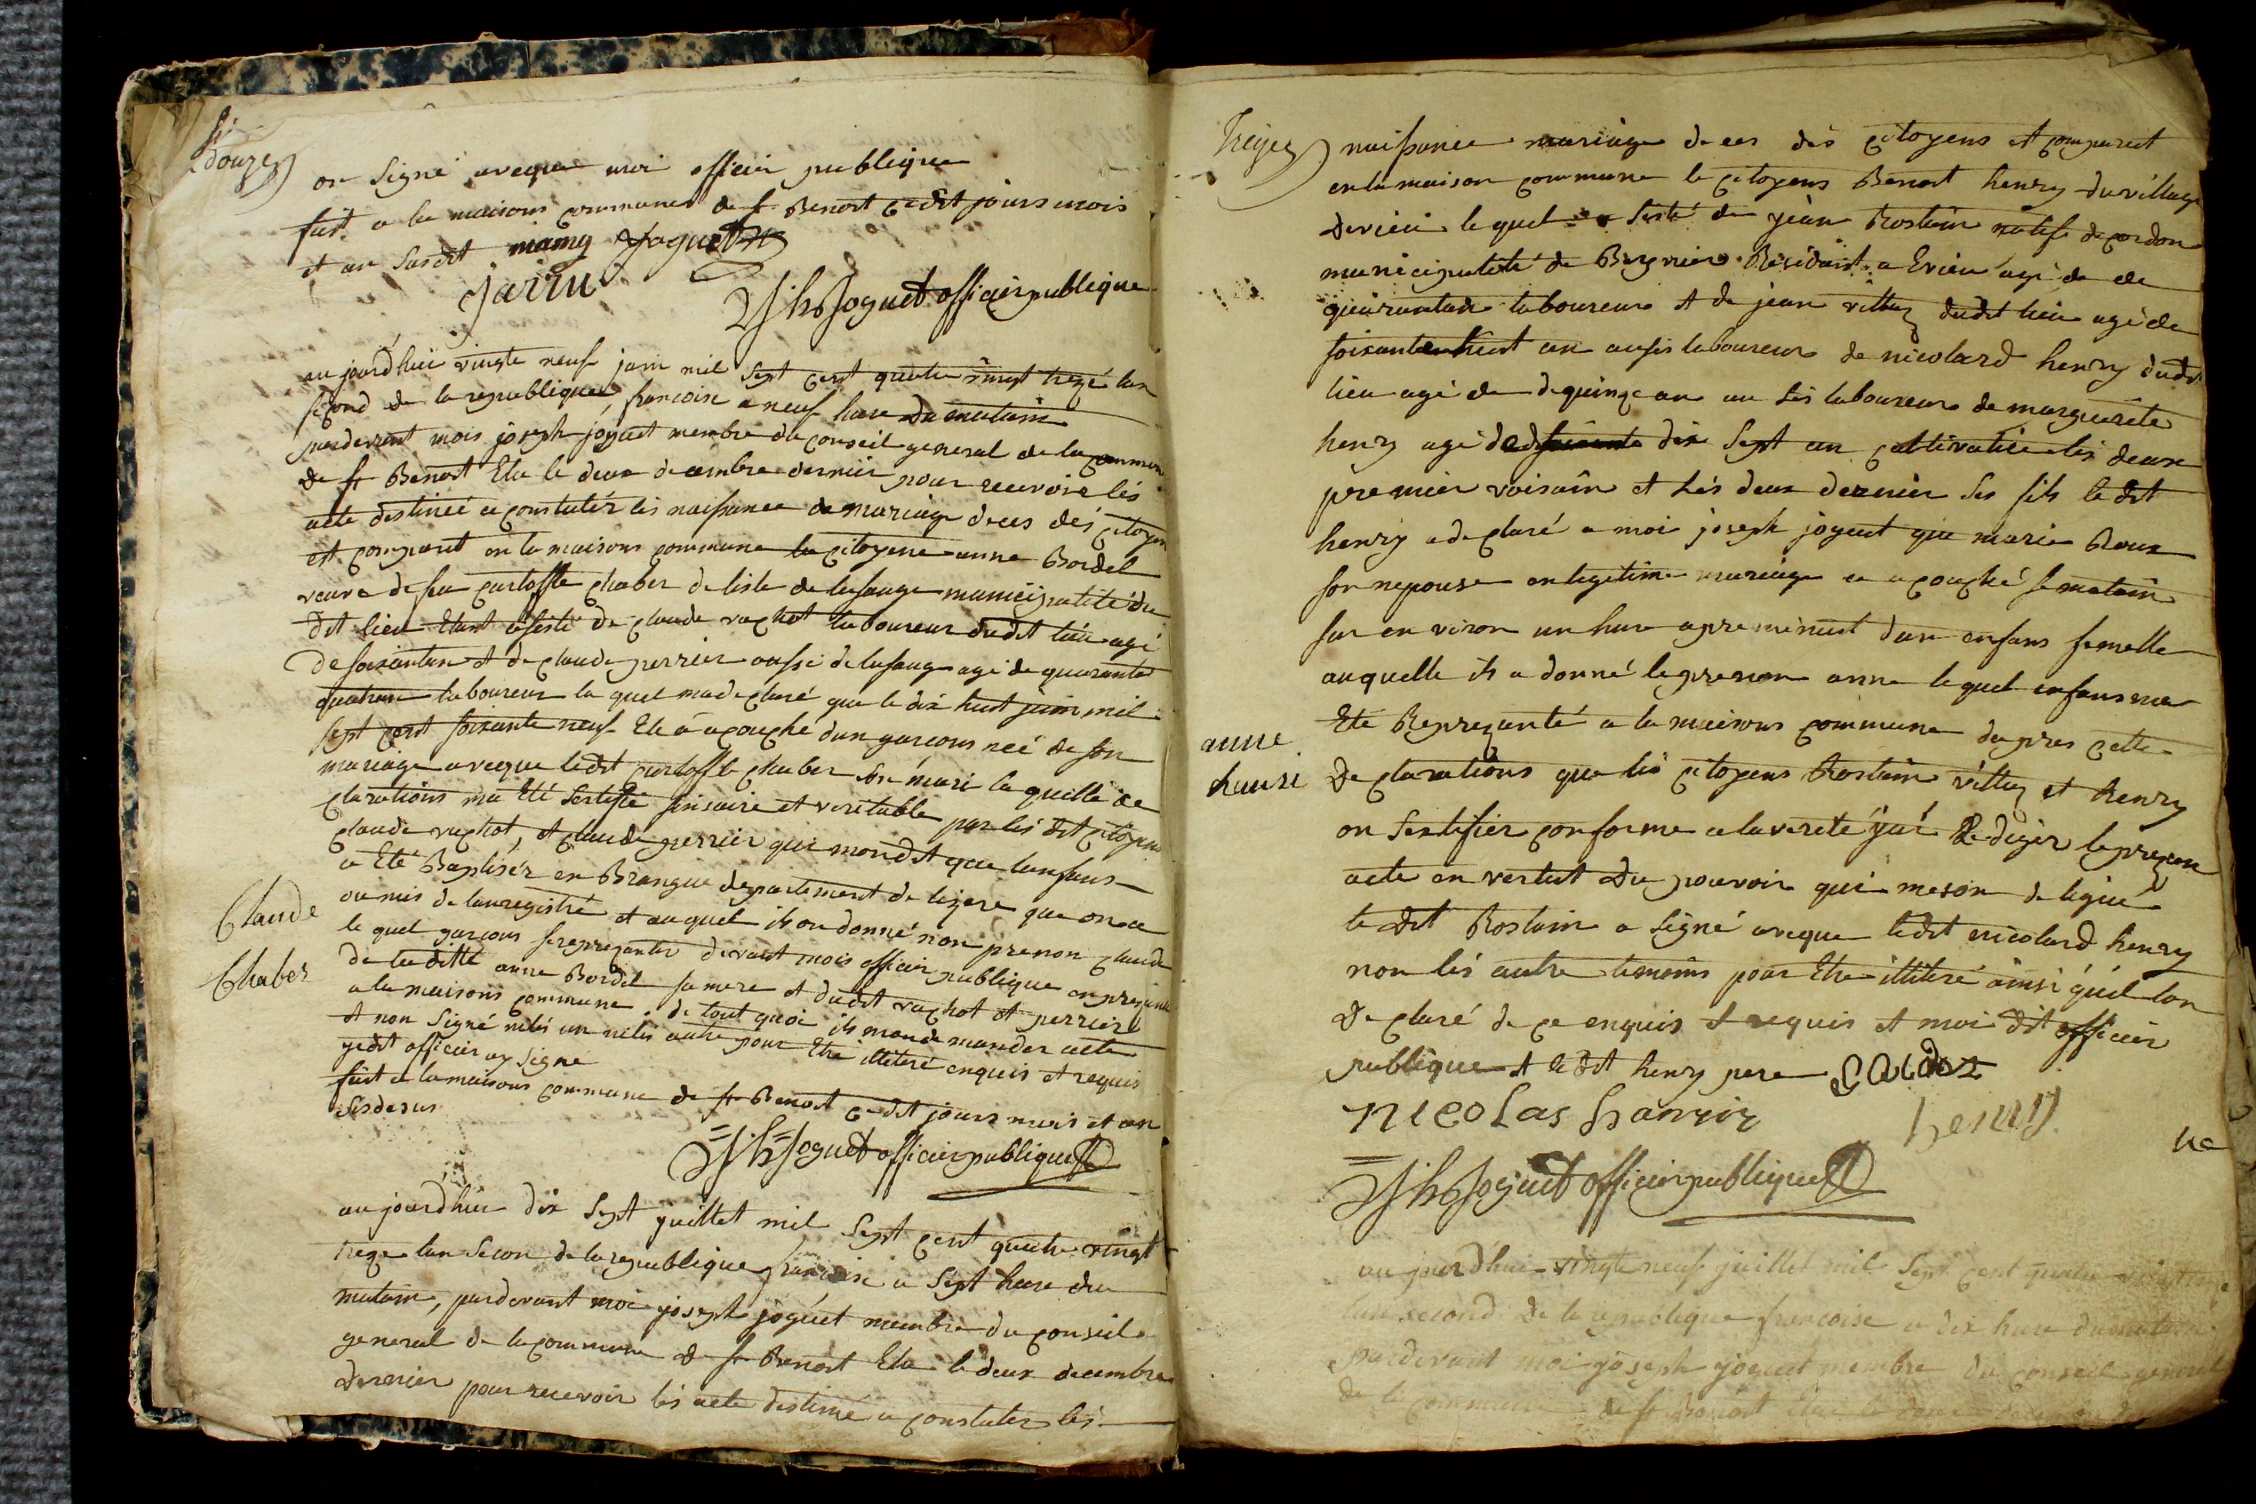 douze
on signé aveque moi officier publique
fait a la maisons commune de st Benoit cedit jours mois
et an susdit mamy Joguet
Jarru
Jh Joguet officier publique
au jourd'hui vingte neuf juin mil sept cent quatre vingt treze lan
segond de la republique francoise a neuf hure du matain
pardevant mois joseph joguet membre du conseil general de la commune
de st Benoit Elu le deux decembre dernier pour recevoir lés
acte destinéé a constatér lés naissance de mariage deces dés citoyen
est comparut en la maisons commune la citoyene anne Bordel
veuve de feu curtoffle chaber de liste de lusauge municipalité du
dit lieu Etant asisté de claude vachot laboureur dudit lieu agé
de soixantan et de claude perrier aussi de lusauge agé de quarante
quatran laboureur la quel ma declaré que le dix huit juin mil
sept cent soixante neuf Ele a acouché dun garcons néé de son
mariage aveque ledit curtoffle chaber son mari la quelle de
clarations ma Eté sertifié sinsaire et veritable par lés dit citoyen
claude vachot, et claude perrier qui mondit que lanfans
a Eté Baptisér en Brangue departement de lizere que on a
Claude
ou mis de lanregistré et auquel ils on donné non prenon claude
le quel garcons se reprezanter devant mois officier publique en prezance
Chaber
de la ditte anne Bordel sa mere et dudit vachot et perrier
a la maisons commune de tout quoi ils monde mander acte
et non signé nélés un nélés autre pour Etre illiteré enquis et requis
gedit officier ay signe
fait a la maisons commune de st Benoit cedit jours mois et an
susdesus
Jh Joguet officier publique
au jourd'hui dix sept juillet mil sept cent quatre vingt
treze lan secon de la republique francoise a sept hure du
matain, pardevant moi joseph joguet membre du conseil
general de la commune de st Benoit Elu le deux decembre
dernier pour recevoir lés acte destiné a constater lés
Treize
naissance mariage deces dés citoyens et comparut
en la maison commune le citoyens Benoit henry du village
devieu lequel a sisté de jean Rostain natif de cordon
municipalité de Bregnier Residant a Evieu agé de
quarantan laboureur et de jean villuz dudit lieu agé de
soixantenhuit an ausis laboureur de nicolard henry dudit
lieu agé de de quinze an au sis laboureur de marguerite
henry agé de dix sept an cultivatrice lés deux
premier voisain et lés deux dernier ses fils le dit
henry a declaré a moi joseph joguet que marie Roux
son nepouse en legitime mariage a acouché se matain
sur en viron un hure apre minuit dun enfans femelle
auquelle ils a donné le prenon anne lequel enfans ma
Eté Reprezanté a la maisons commune dapres cette
anne
hanri
declarations que lés citoyens Rostain villuz et henry
on sertifier conforme a la vereté jai Rediger le prezan
acte en vertut du pouvoir qui meson deligué
le dit Rostain a signé aveque ledit nicolard henry
non lés autre temoins pour Etre illiteré ainsi quil lon
declaré de ce enquis et requis et moi dit officier
publique et le dit henry pere
nicolas hanrir
henry
Jh Joguet officier publique
ne
au jourdhui vingte neuf juillet mil sept cent quatre vingt treze
lan second de la republique francoise a dix hure du matain
pardevant moi joseph joguet membre du conseil general
de la commune de st Benoit Elu le deux